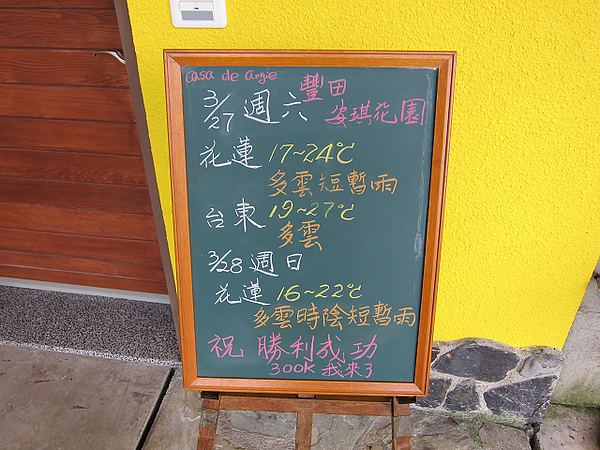 casa de angie
豐田
3/27 週六 安琪花園
花蓮 17~24℃
多雲短暫雨
台東 19~27℃
多雲
3/28 週日
花蓮 16~22℃
多雲時陰短暫雨
祝 勝利成功
300K 我來了